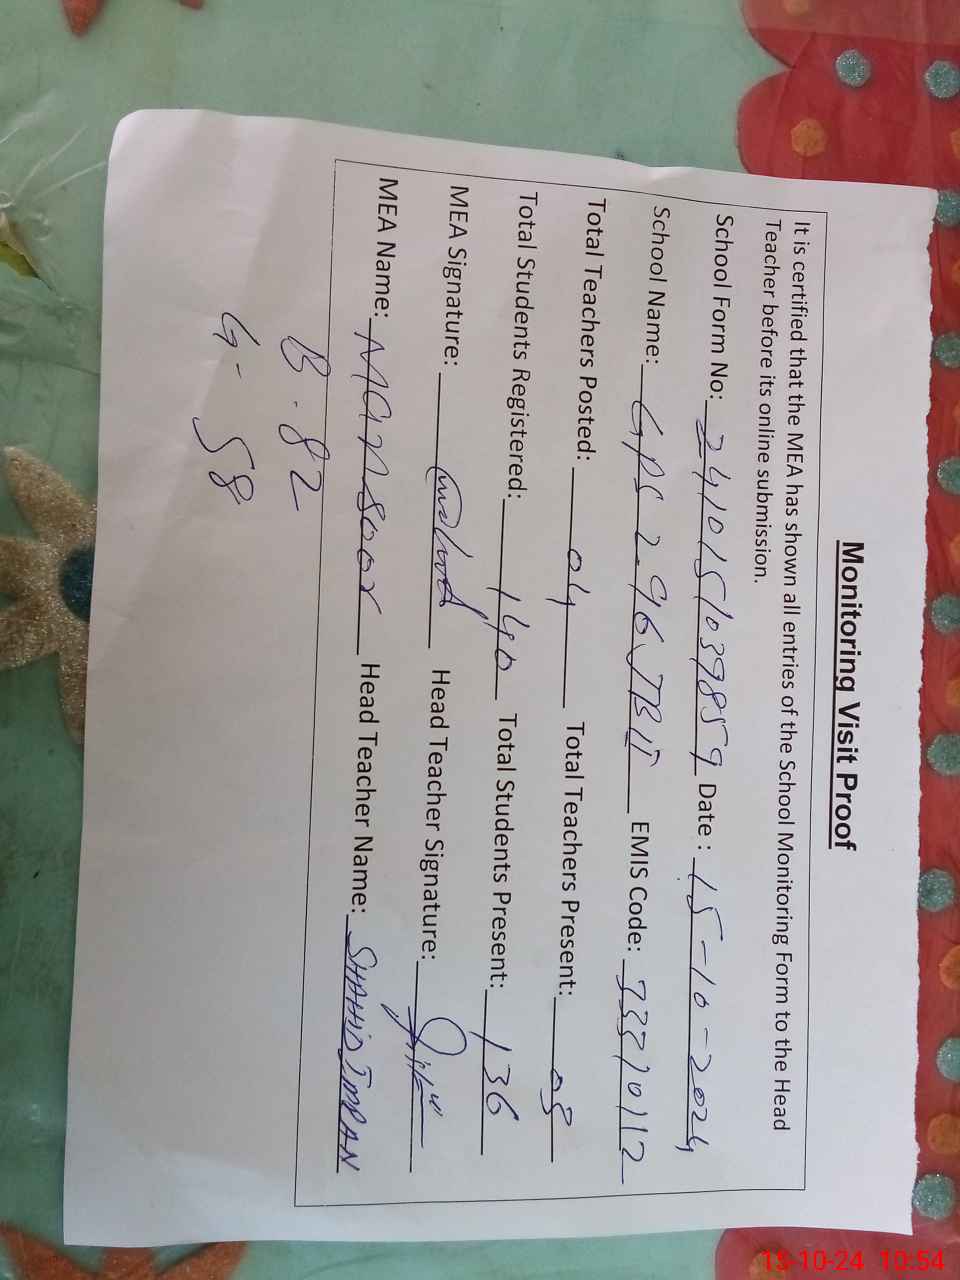 Monitoring Visit Proof
It is certified that the MEA has shown all entries of the School Monitoring Form to the Head
Teacher before its online submission.
School Form No: 241015103985 9 Date : 15-10-2024
School Name: GPS 2-96 JB II EMIS Code: 33310112
Total Teachers Posted: 04 Total Teachers Present: 03
Total Students Registered: 140 Total Students Present: 136
MEA Signature: Head Teacher Signature:
MEA Name: Mansoor Head Teacher Name: SHAHID IMRAN
B - 82
G - 58
15-10-24 10:54